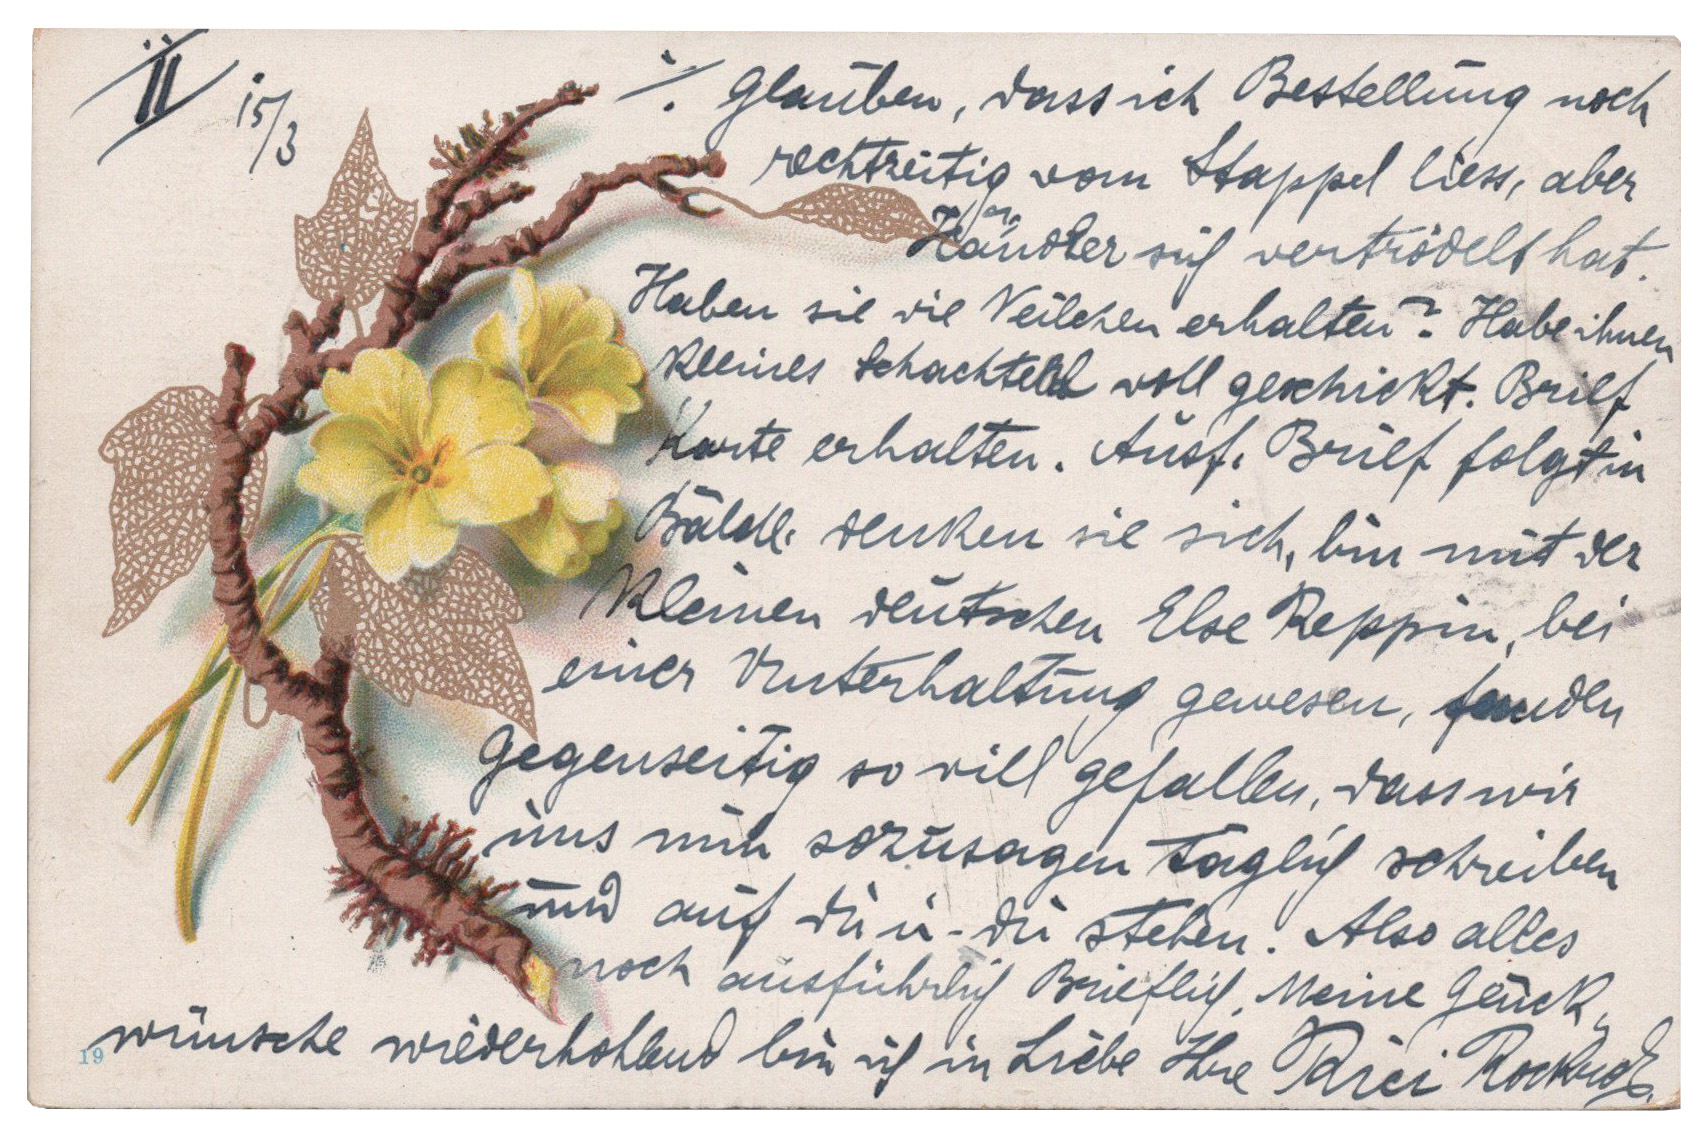 II 15/3
·/. Glauben, dass ich Bestellung noch
rechtzeitig vom Stappel liess, aber
Händler sich vertrödelt hat.
Haben sie die Veilchen erhalten? Habe ihnen
kleines Schachtel voll geschickt. Brief
Karte erhalten. Ausf. Brief folgt in
Bälde. denken sie sich, bin mit der
kleinen deutschen Else Reppin, bei
einer Unterhaltung gewesen, fanden
gegenseitig so viel gefallen, dass wir
uns nun sozusagen täglich schreiben
und auf du u - du stehen. Also alles
noch ausführlich Brieflich. Meine Glück„
wünsche wiederhohlend bin ich in Liebe Ihre
19